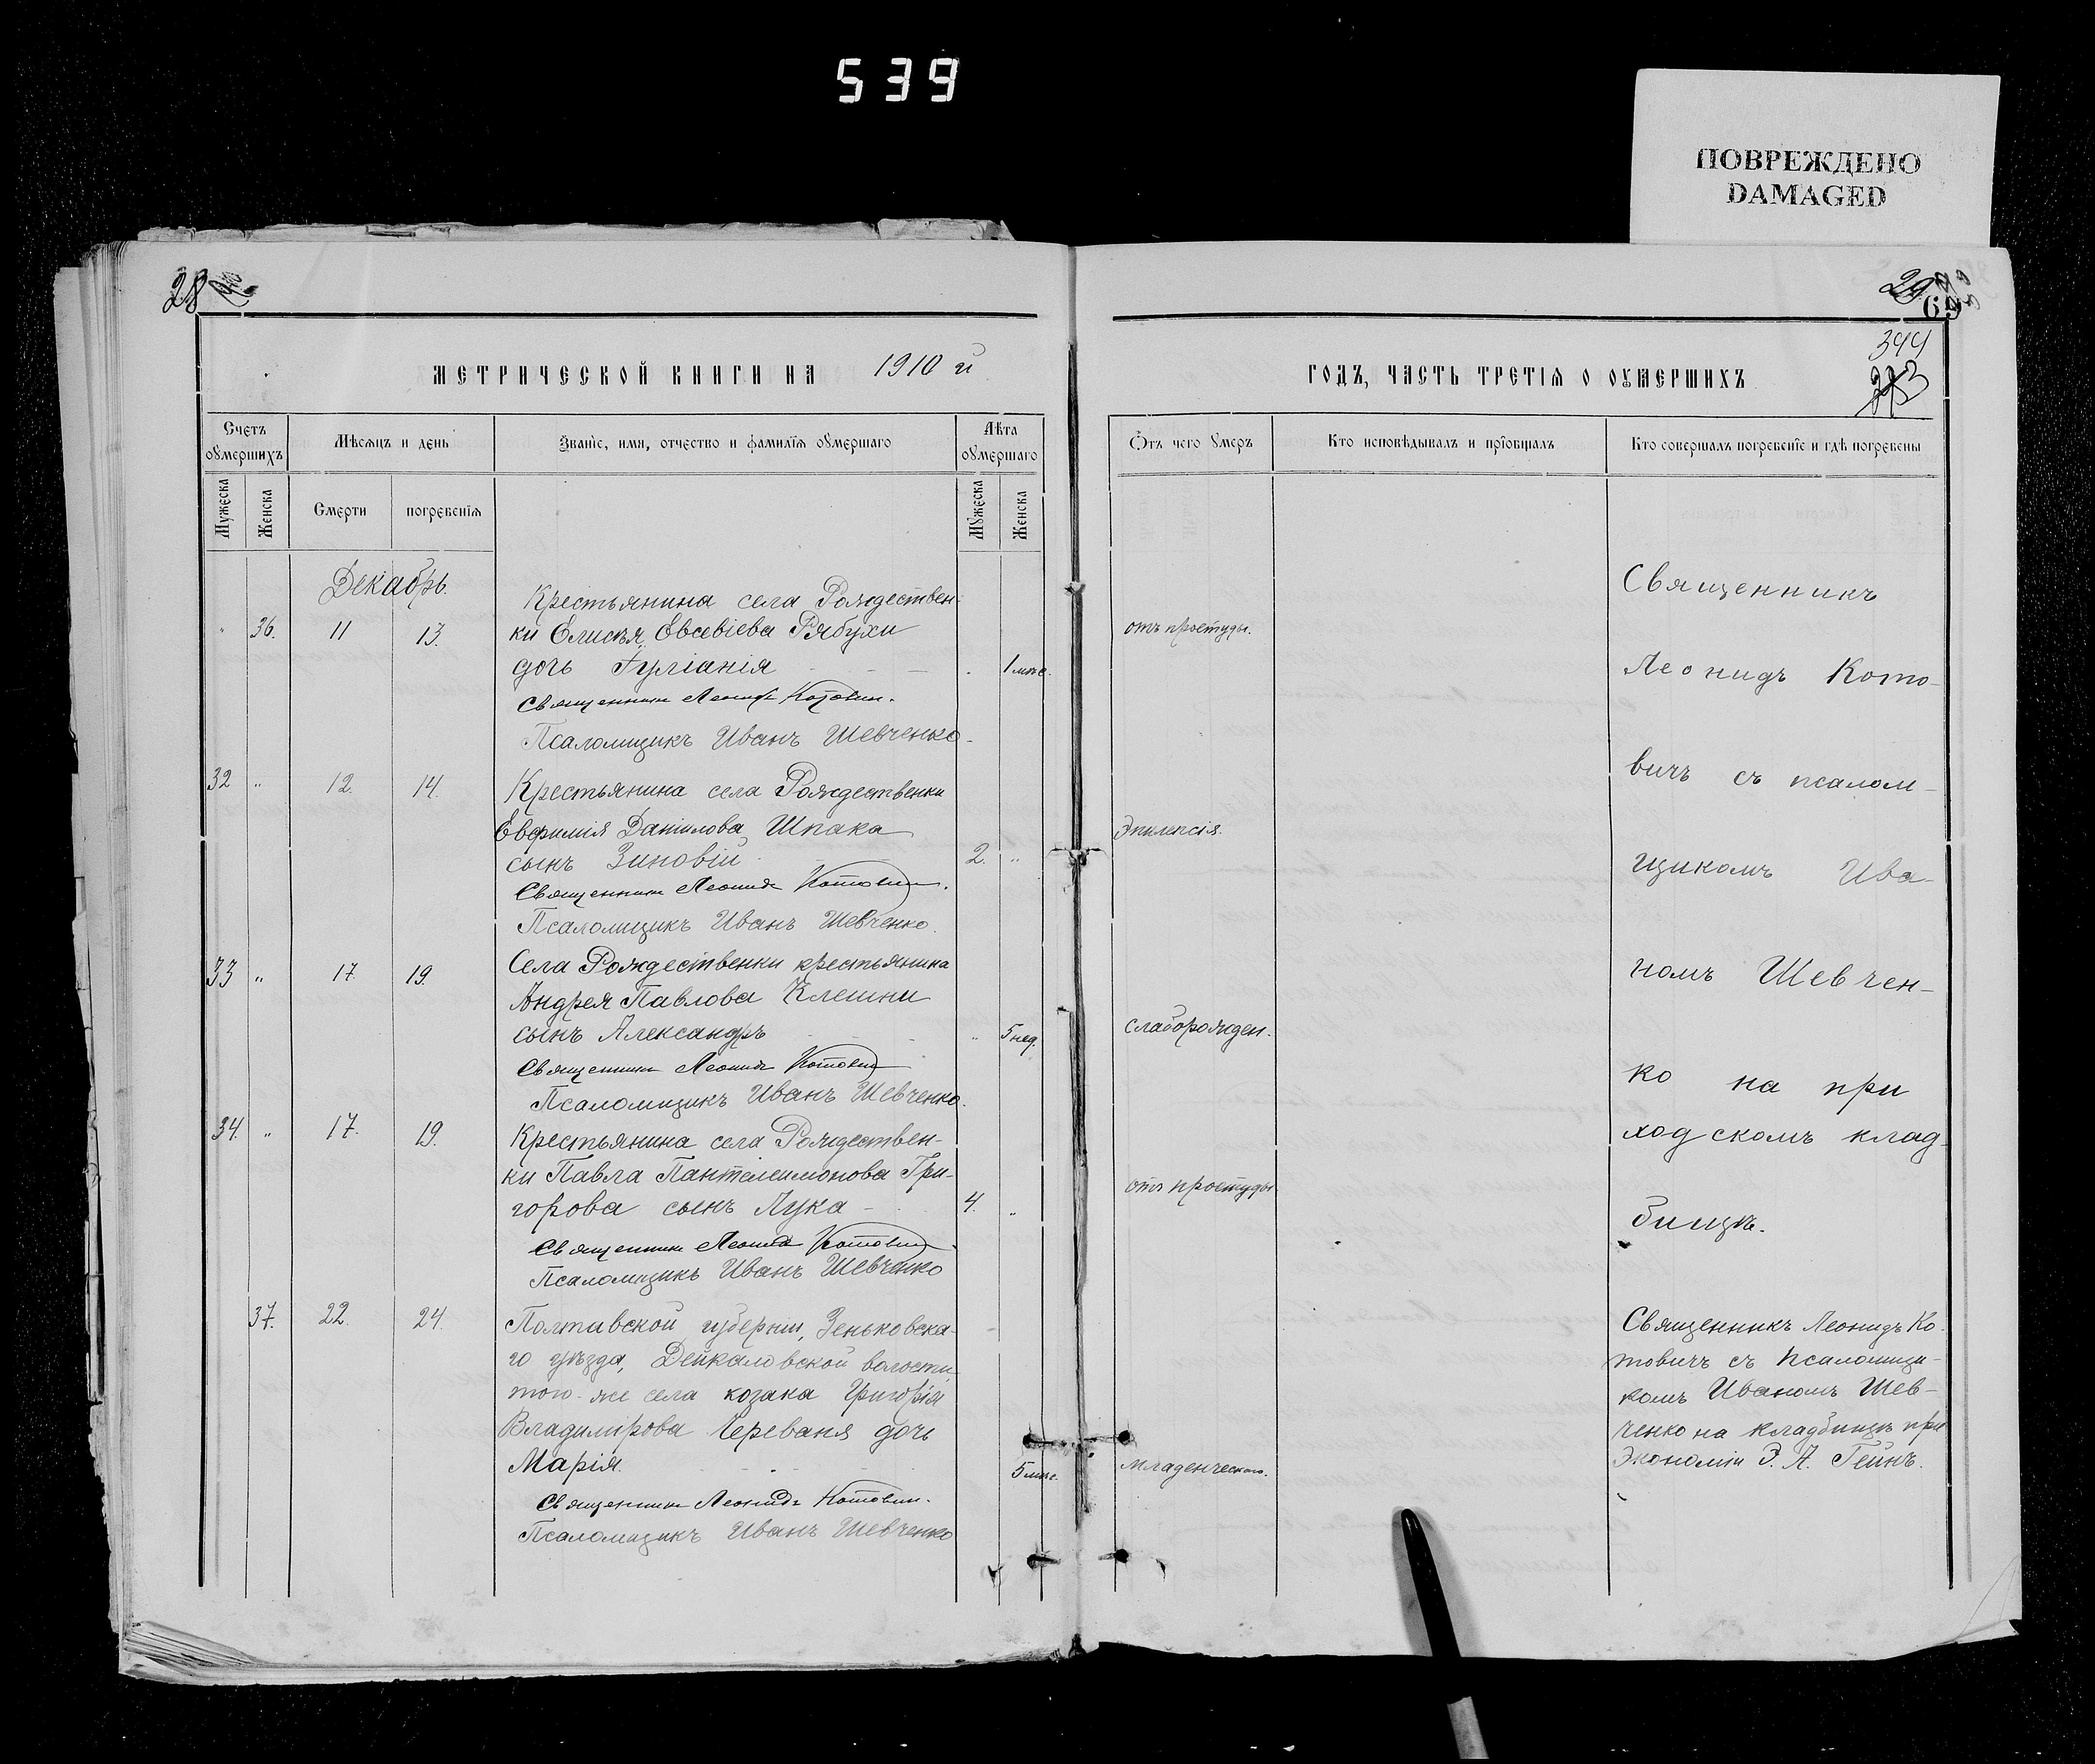 539
ПОВРЕЖДЕНО
DAMAGED
28
МЕТРИЧЕСКОЙ КНИГИ НА 1910 й
Счетъ оумершихъ
Мѣсяцъ и день
Званїе, имя, отчество и фамилїя оумершаго
Лѣта оумершаго
Мужеска
Женска
Смерти
погребенїя
Мужеска
Женска
Декабрь.
Крестьянина села Рождествен-
" 36. 11 13. ки Елисѣя Евсевіева Рябухи
дочь Іуліанія - - - . 1 мѣс.
Священникъ Леонидъ Котович.
Псаломщикъ Иванъ Шевченко
32 " 12. 14. Крестьянина села Рождественки
Евфимія Даніилова Шпака
сынъ Зиновій 2. "
Священникъ Леонидъ Котович.
Псаломщикъ Иванъ Шевченко.
33 " 17. 19. Села Рождественки крестьянина
Андрея Павлова Клешни
сынъ Александръ " 5 нед.
Священникъ Леонидъ Котович
Псаломщикъ Иванъ Шевченко.
34. " 17. 19. Крестьянина села Рождествен-
ки Павла Пантелеимонова Гри-
горова сынъ Лука - 4. "
Священникъ Леонидъ Котович
Псаломщикъ Иванъ Шевченко
37. 22. 24. Полтавской губерніи, Зеньковска-
го уѣзда, Дейкаловской волости,
того-же села козака Григорія
Владимірова Череваня дочь
Марія. 5 мѣс.
Священникъ Леонидъ Котович.
Псаломщикъ Иванъ Шевченко
29
69
344
ГОДЪ, ЧАСТЬ ТРЕТІЯ О ОУМЕРШИХЪ
Ѿтъ чего умеръ
Кто исповѣдывалъ и прїобщалъ
Кто совершалъ погребенїе и гдѣ погребены
отъ простуды.
Эпилепсія.
слаборожден.
отъ простуды
младенческаго.
Священникъ
Леонидъ Кото-
вичъ съ псалом-
щикомъ Ива-
номъ Шевчен-
ко на при
ходскомъ клад-
бищѣ.
Священникъ Леонидъ Ко-
товичъ съ псаломщи-
комъ Иваномъ Шев-
ченко на кладбищѣ при
Экономіи Э. А. Гейнъ.